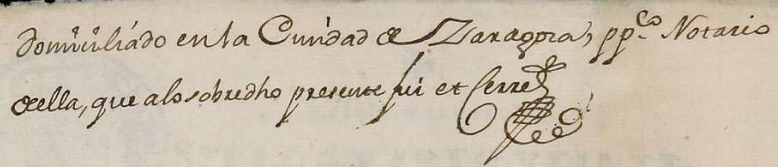 domiciliado en la Ciudad de Zaragoza, pp.co Notario
de ella, que a lo sobredho presente fui et Cerré